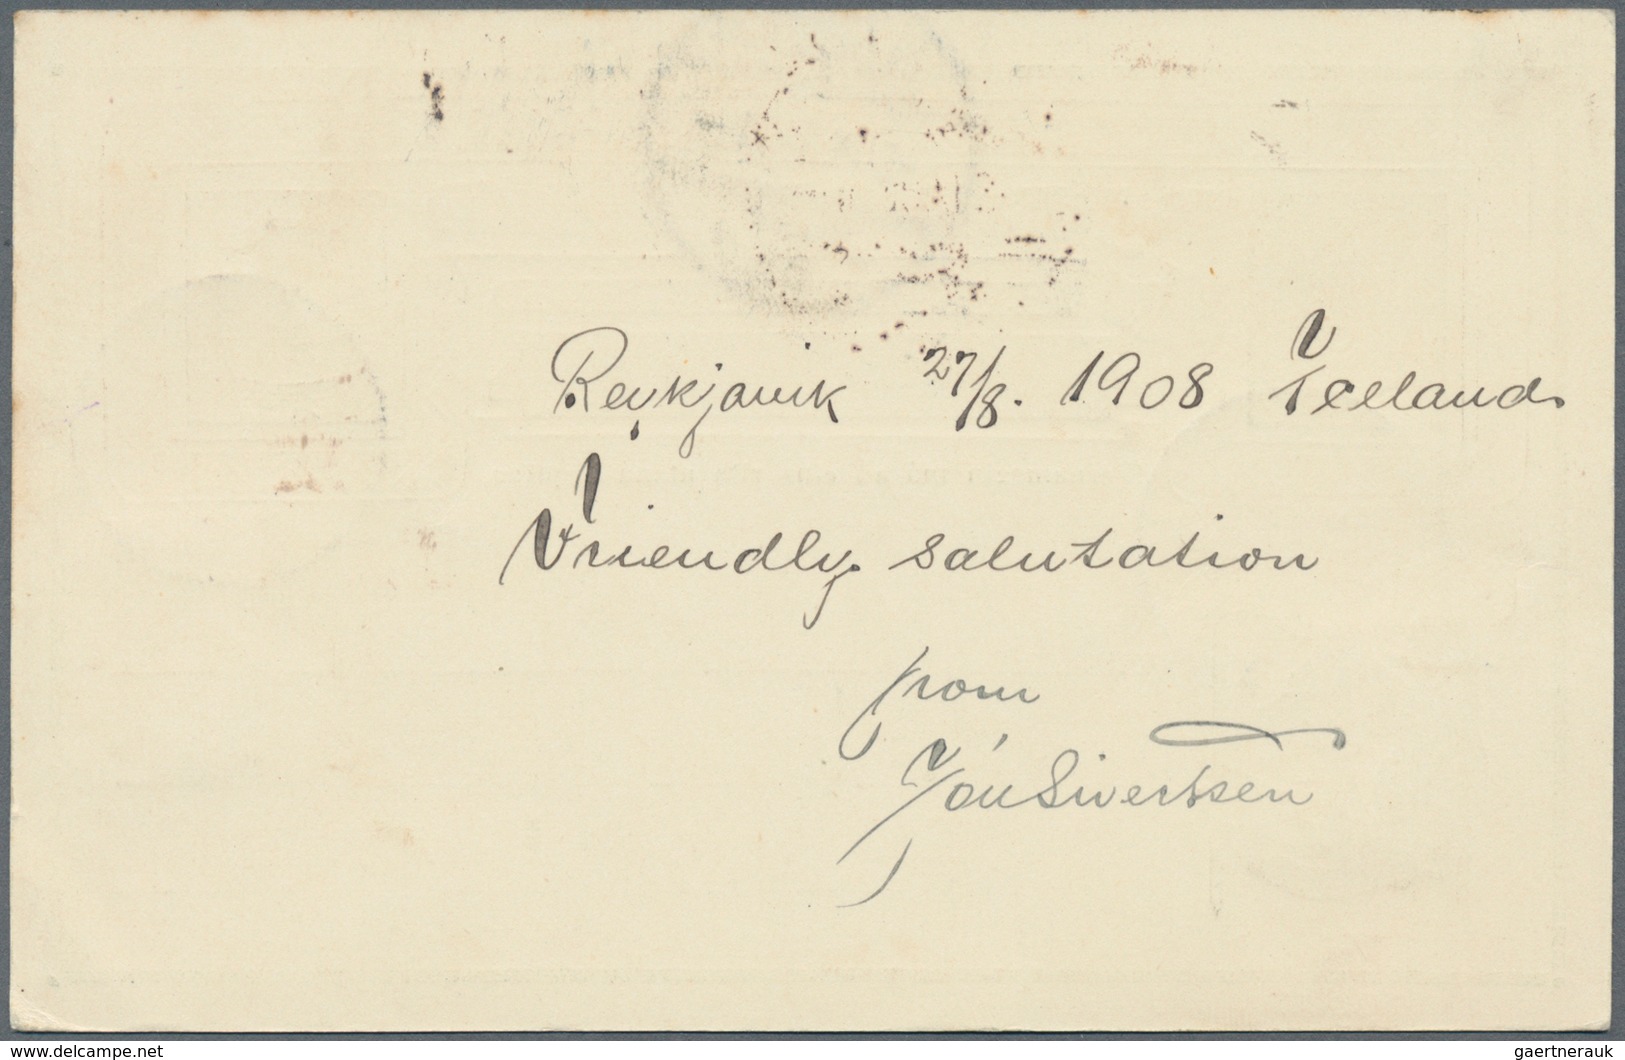 Reykjavik 27/8. 1908 Iceland.
Vriendly. salutation
from
Jón Sivertsen
www.delcampe.net
gaertnerauk